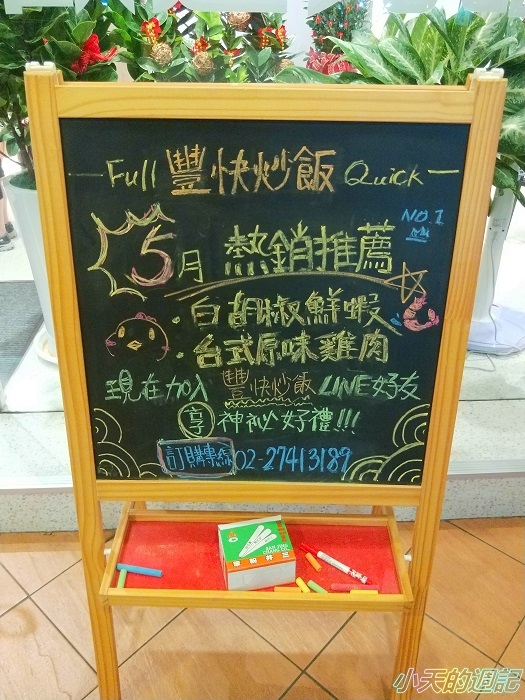 Full 豐快炒飯 Quick
NO.1
5月 熱銷推薦
·白胡椒鮮蝦
·台式原味雞肉
現在加入 豐快炒飯 LINE好友
享 神祕好禮!!!
訂購專線 02-27413189
小天的週記